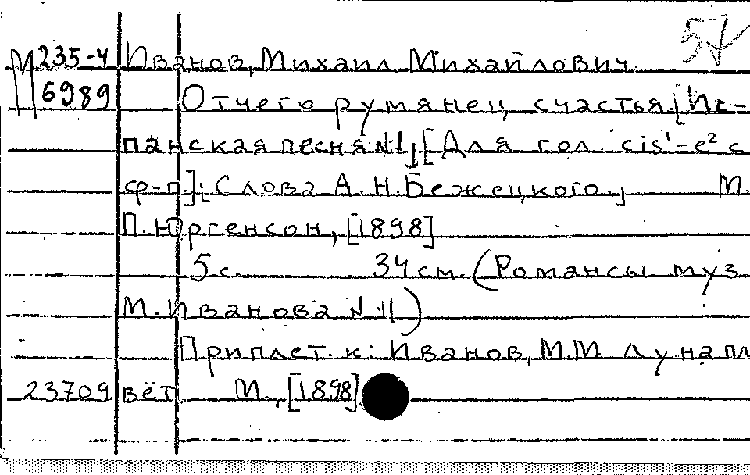 57
М 235-4 Иванов, Михаил Михайлович.
6989 Отчего румянец счастья [Ис-
панская песня №1] [Для гол. cis¹-e² с
ф-п]; Слова А.Н.Бежецкого.] М
П. Юргенсон, [1898]
5 с. 34 см. (Романсы муз
М. Иванова №11)
Приплет. к: Иванов, М.М Луна пл
23709 вёт М., [1898]